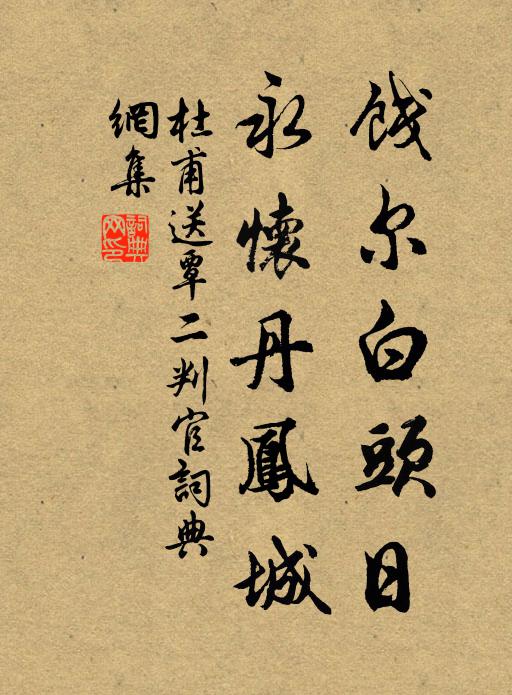 餞尔白頭日
永懷丹鳳城
杜甫送覃二判官詞典
網集
詞典
网印